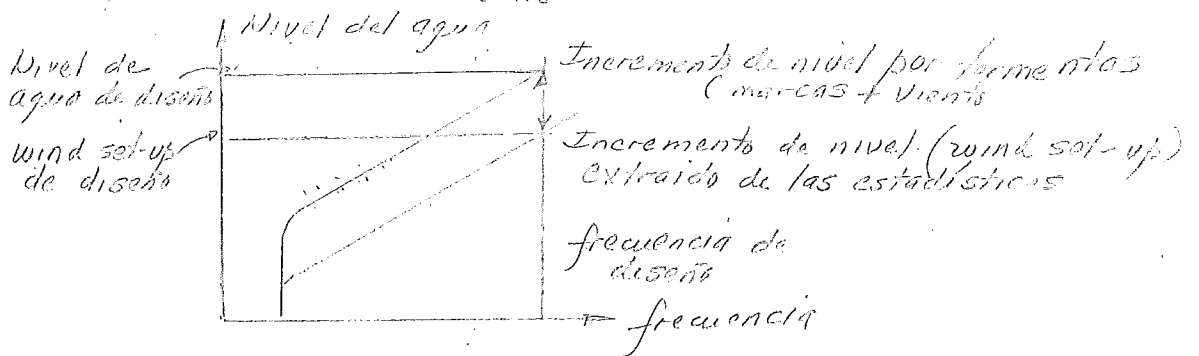 Nivel del agua
Nivel de
agua de diseño
wind set-up
de diseño
Incremento de nivel por tormentas
(mareas + viento
Incremento de nivel (wind set-up)
extraido de las estadísticas
frecuencia de
diseño
frecuencia